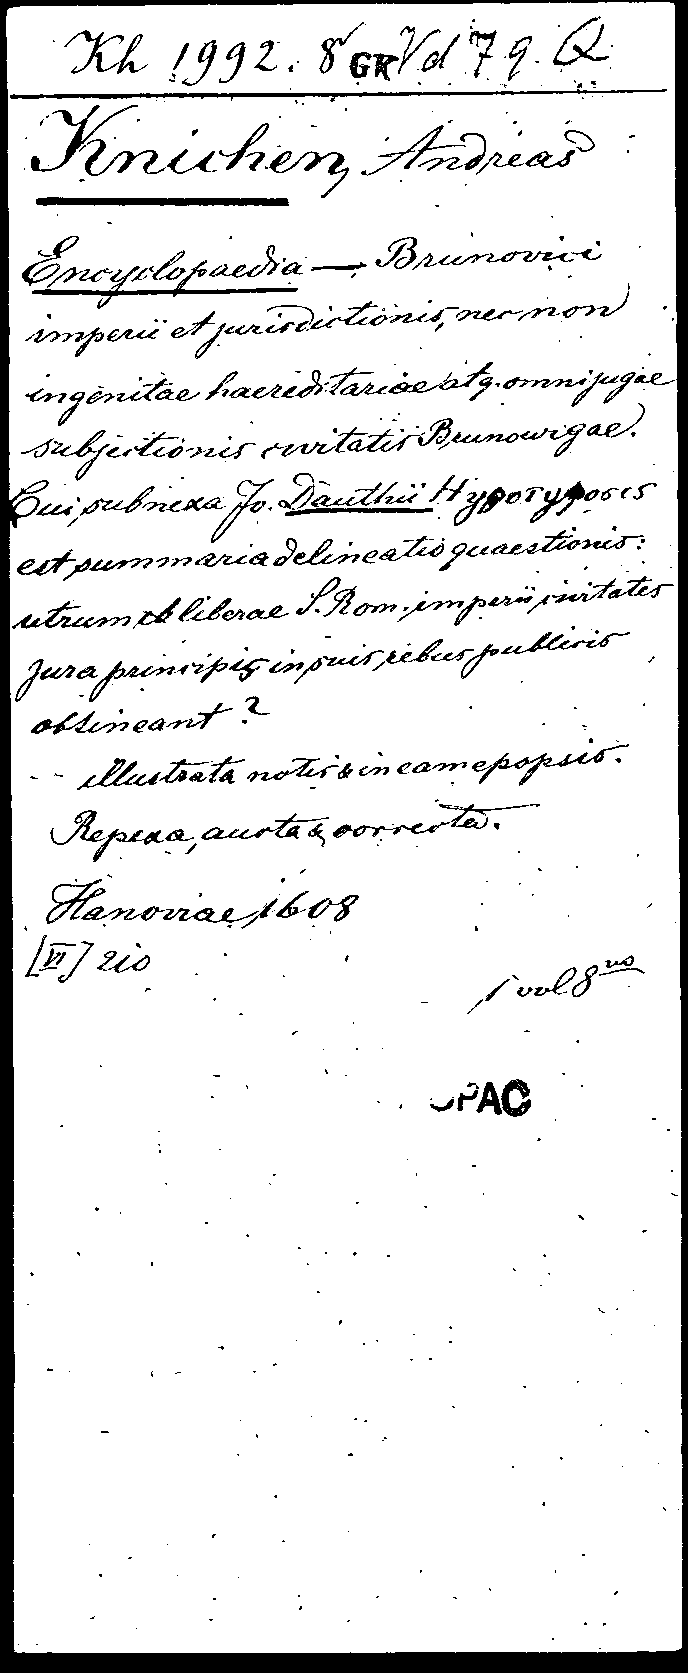 Kh 1992. 8 GK Vd 79. Q
Knichen, Andreas
Encyclopaedia — Brunovici
imperii et jurisdictionis, nec non
ingenitae haereditariae atq. omnijugae
subjectionis civitatis Brunovigae.
Cui subnexa Jo. Dauthii Hypotyposis
est summaria delineatio quaestionis:
utrum liberae S. Rom. imperii civitates
jura principis in suis rebus publicis
obtineant?
-- illustrata notis & in eam epopsis.
Repexa, aucta & correcta.
Hanoviae, 1608
[VI] 210
1 vol 8vo
OPAC